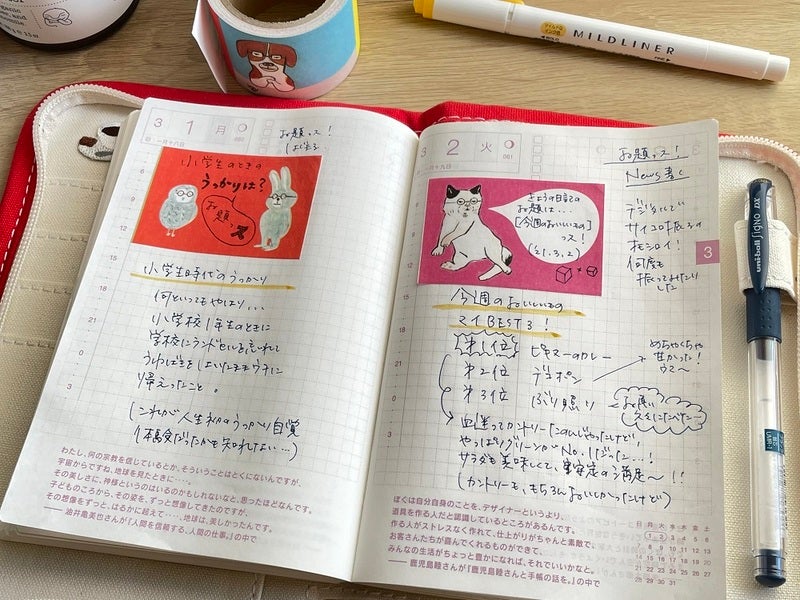 MILDLINER
3 1 月 061
一月十八日
お題ッス!
はじまる
小学生のときの
うっかりは?
お題ッス
小学生時代のうっかり
何といってもやはり...
小学校1年生のときに
学校にランドセルを忘れて
帰えったこと。
(これが人生初のうっかり自覚
わたし、何の宗教を信じているとか、そういうことはとくにないんですが、
宇宙からですね、地球を見たときに‥‥。
その美しさに、神様というのはいるのかもしれないなと、思ったほどなんです。
子どものころから、その姿を、ずっと想像してきたのですが、
その想像をずっと、はるかに超えて‥‥、地球は、美しかったんです。
──油井亀美也さんが『人間を信頼する、人間の仕事。』の中で
3 2 火 061
一月十九日
お題ッス!
News書く
デジタルで
サイコロ振るの
オモシロイ!
何度も
振ってみたり
した
きょうの日記の
お題は...
[今週のおいしいもの]
ッス!
(21.3.2)
3
今週のおいしいもの
マイBEST3!
第1位 ピキマーのカレー
第2位 デコポン
第3位 ぶり照り
めちゃくちゃ
甘かった!
ウマ〜
やっぱりグリーンがNo.1だった...!
サラダも美味しくて、安定の満足〜!!
(カントリーも、もちろんおいしかったけど)
ぼくは自分自身のことを、デザイナーというより、
道具を作る人だと認識しているところがあるんです。
作る人がストレスなく作れて、仕上がりがちゃんと素敵で、
お客さんたちが喜んでくれるものができて、
みんなの生活がちょっと豊かになれば、それでいいかなと。
──鹿児島睦さんが『鹿児島睦さんと手帳の話を。』の中で
uni-ball SIGNO DX